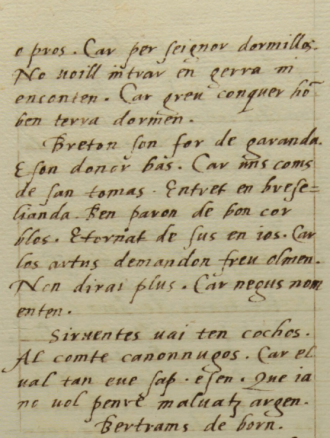 e pros. Car per seignor dormillos.
No uoill intrar en gerra ni
enconten. Car greu conquer hō
ben terra dormen.
Breton son for de garanda.
E son donor bas. Car uns coms
de san tomas. Entret en brese=
lianda. Ben paron de bon cor
blos. Etornat de sus en ios. Car
los artus demandon freuolmen.
Non dirai plus. Car negus nom
enten.
Siruentes uai ten cochos.
Al comte canonnugos. Car el
ual tan eue sap. esen. Que ia
no uol penre maluatz argen.
Bertrams de born.